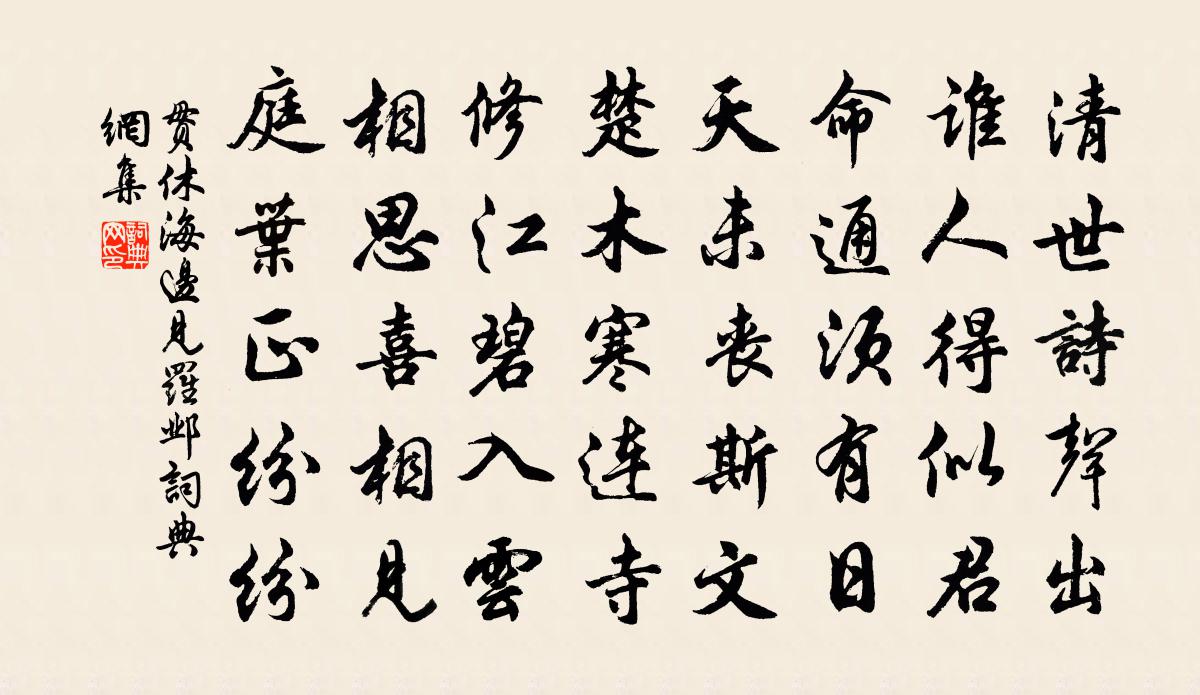 清世詩聲出
誰人得似君
命通須有日
天未喪斯文
楚木寒連寺
修江碧入雲
相思喜相見
庭葉正紛紛
貫休海邊見羅邺詞典
網集
詞典
网印